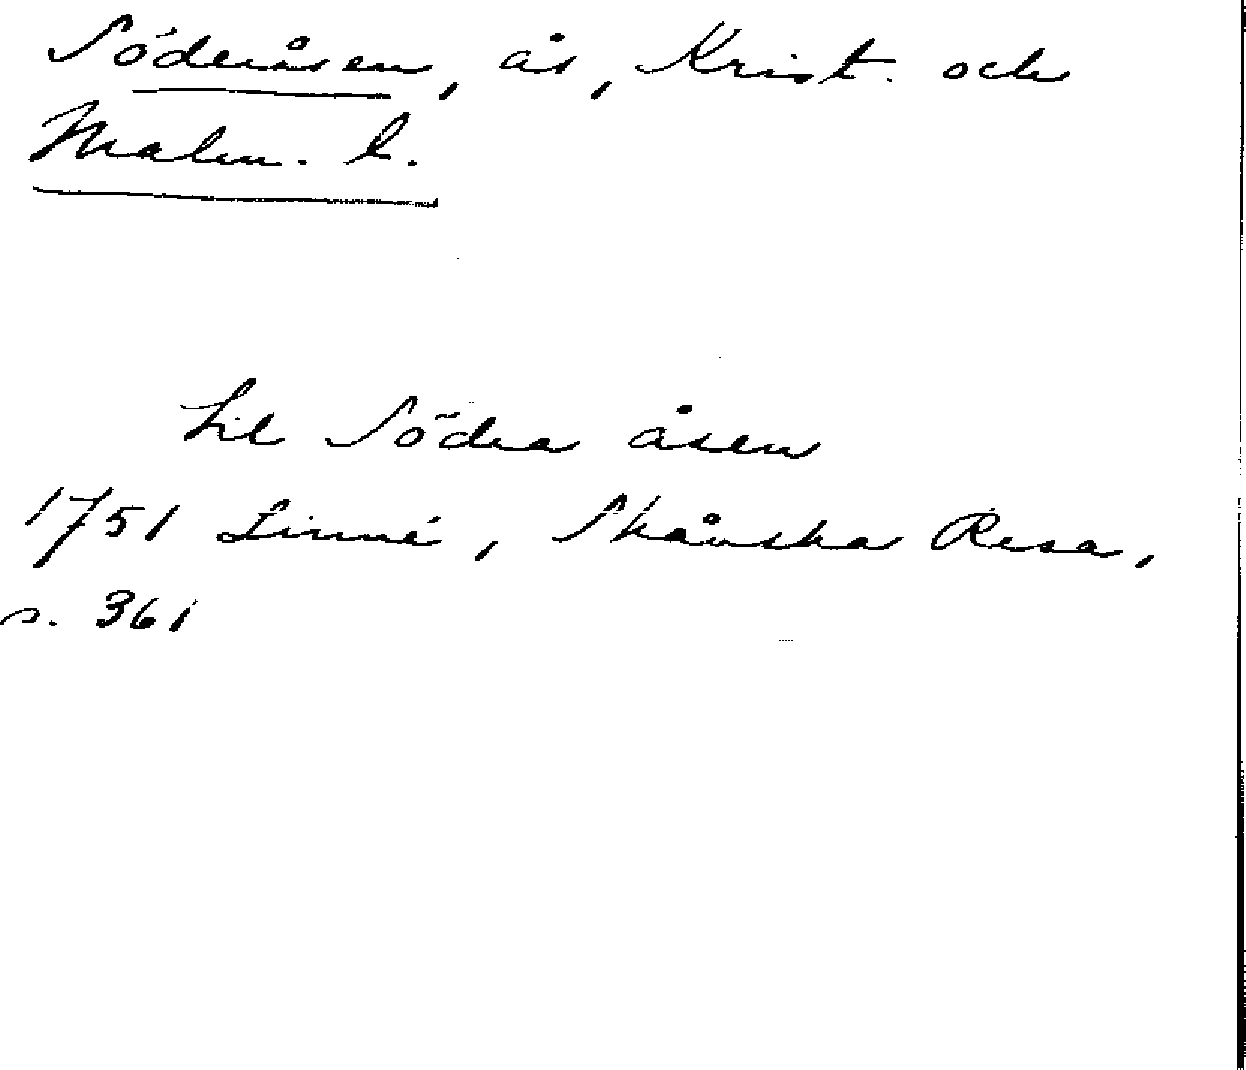 Söderåsen, ås, Krist. och
Malm. l.
til Södra åsen
1751 Linné, Skånska Resa,
s. 361